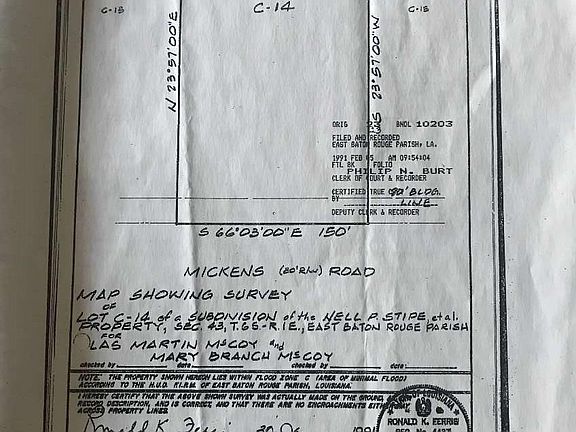 C-15 C-14 C-15
N 23°57'00"E
S 23°57'00"W
ORIG BNDL 10203
FILED AND RECORDED
EAST BATON ROUGE PARISH, LA.
1991 FEB 05 AM 09:54:04
FTL BK FOLIO
PHILIP N. BURT
CLERK OF COURT & RECORDER
CERTIFIED TRUE 80' BLDG.
BY LINE
DEPUTY CLERK & RECORDER
S 66°03'00"E 150'
MICKENS (80'R/W) ROAD
MAP SHOWING SURVEY
OF
LOT C-14 of a SUBDIVISION of the NELL P. STIPE, et al.
PROPERTY, SEC. 43, T.6S.-R.1E., EAST BATON ROUGE PARISH
FOR
LAS MARTIN McCOY and
MARY BRANCH McCOY
checked by date: checked by date:
NOTE: THE PROPERTY SHOWN HEREON LIES WITHIN FLOOD ZONE C (AREA OF MINIMAL FLOOD)
ACCORDING TO THE H.U.D. F.I.R.M. OF EAST BATON ROUGE PARISH, LOUISIANA.
I HEREBY CERTIFY THAT THE ABOVE SHOWN SURVEY WAS ACTUALLY MADE ON THE GROUND
RECORD DESCRIPTION, AND IS CORRECT, AND THAT THERE ARE NO ENCROACHMENTS
ACROSS PROPERTY LINES.
OF LOUISIANA
RONALD K. FERRIS
Ronald K. Ferris